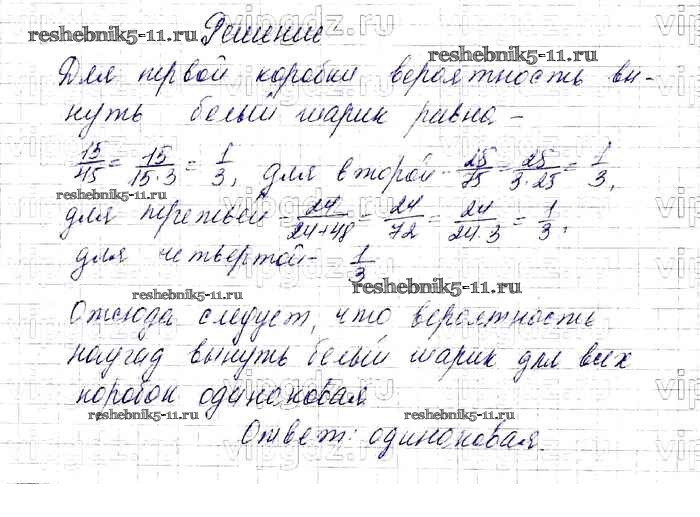 Решение
Для первой коробки вероятность вы-
нуть белый шарик равна -
15/45 = 15/15·3 = 1/3, для второй - 25/75 = 25/3·25 = 1/3,
для третьей - 24/24+48 = 24/72 = 24/24·3 = 1/3,
для четвертой - 1/3
Отсюда следует, что вероятность
наугад вынуть белый шарик для всех
коробок одинаковая
Ответ: одинаковая.
reshebnik5-11.ru
reshebnik5-11.ru
reshebnik5-11.ru
reshebnik5-11.ru
reshebnik5-11.ru
reshebnik5-11.ru
reshebnik5-11.ru
vipgdz.ru